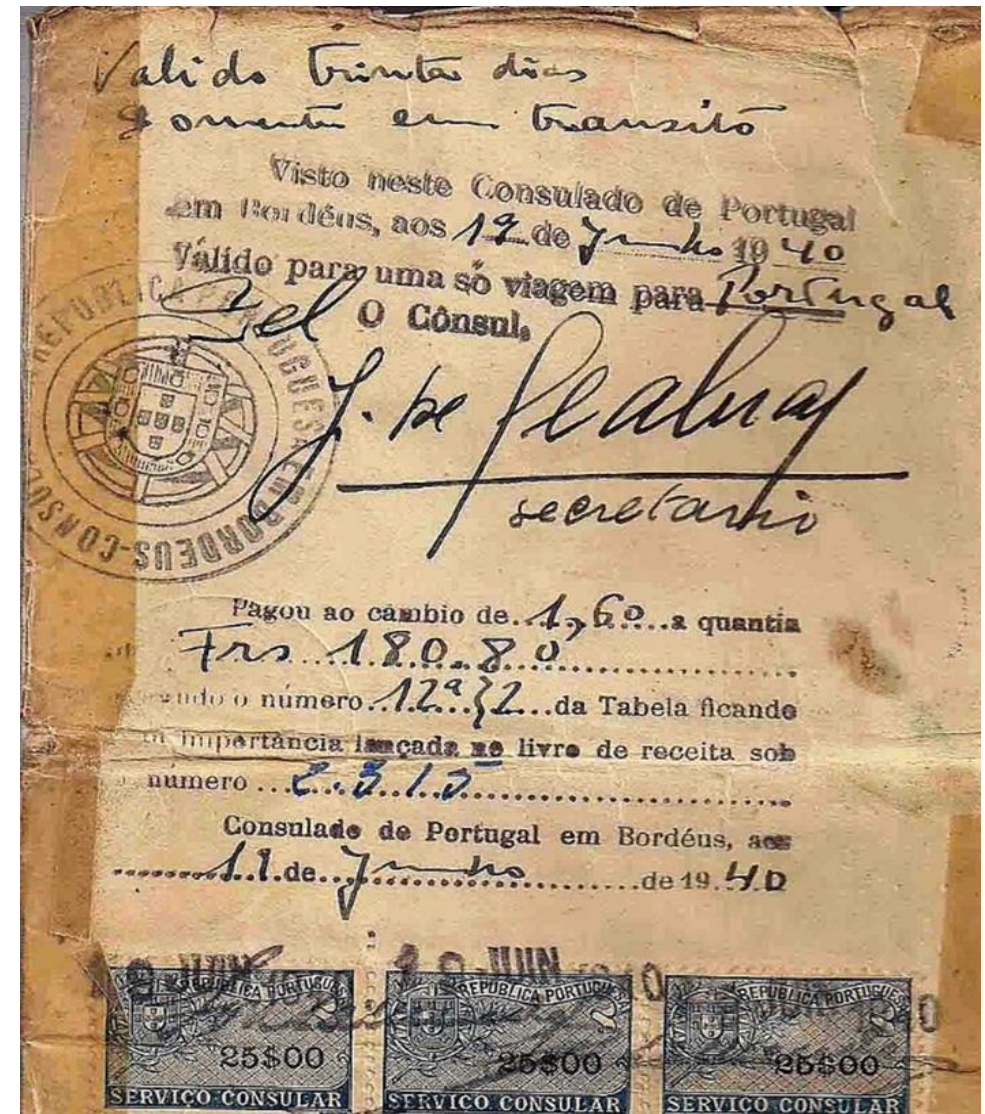 Valido trinta dias
somente em transito
Visto neste Consulado de Portugal
em Bordéus, aos 19 de Junho 1940
Válido para uma só viagem para Portugal
O Cônsul,
secretario
REPUBLICA PORTUGUESA EM BORDEUS-CONSUL
Pagou ao câmbio de 1,60 a quantia
Frs 180.80
o número 12ª }2 da Tabela ficando
importância lançada no livro de receita sob
número 2.315
Consulado de Portugal em Bordéus, aos
de Junho de 1940
19 JUN 19 JUN
REPUBLICA PORTUGUESA REPUBLICA PORTUGUESA REPUBLICA PORTUGUESA
25$00 25$00 25$00
SERVIÇO CONSULAR SERVIÇO CONSULAR SERVIÇO CONSULAR